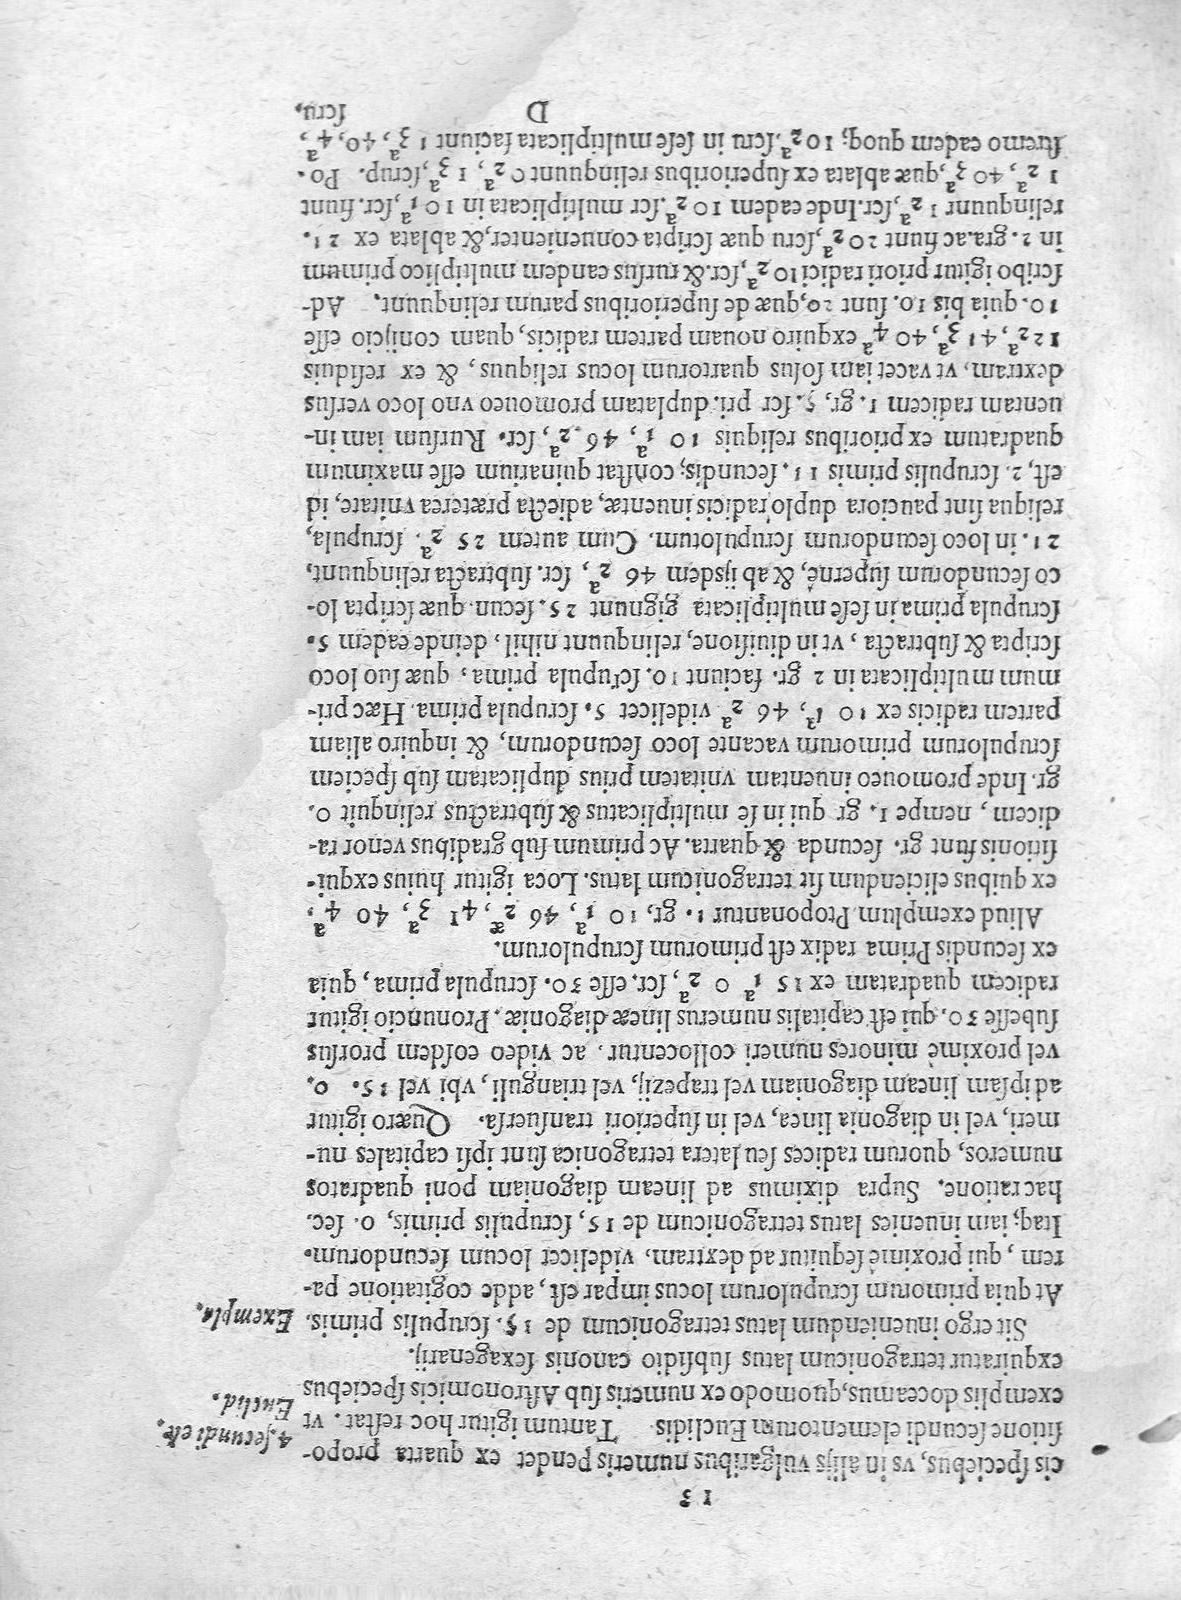 13
cis ſpeciebus, vs in alijs vulgaribus numeris pendet ex quarta propo-
ſitione ſecundi elementorum Euclidis. Tantum igitur hoc reſtat. vt
4. ſecundi elẽ.
Euclid.
exemplis doceamus, quomodo ex numeris ſub Aſtronomicis ſpeciebus
exquiratur tetragonicum latus ſubſidio canonis ſexagenarij.
Sit ergo inueniendum latus tetragonicum de 15. ſcrupulis primis.
Exempla.
At quia primorum ſcrupulorum locus impar eſt, adde cogitatione pa-
rem, qui proximè ſequitur ad dextram, videlicet locum ſecundorum.
Itaq; iam inuenies latus tetragonicum de 15, ſcrupulis primis, 0. ſec.
hac ratione. Supra diximus ad lineam diagoniam poni quadratos
numeros, quorum radices ſeu latera tetragonica ſunt ipſi capitales nu-
meri, vel in diagonia linea, vel in ſuperiori tranſuerſa. Quæro igitur
ad ipſam lineam diagoniam vel trapezij, vel trianguli, vbi vel 15. 0.
vel proximè minores numeri collocentur, ac video eoſdem prorſus
ſubeſſe 30. qui eſt capitalis numerus lineæ diagoniæ. Pronuncio igitur
radicem quadratam ex 15 1ᵃ 0 2ᵃ, ſcr. eſſe 30. ſcrupula prima, quia
ex ſecundis Prima radix eſt primorum ſcrupulorum.
Aliud exemplum Proponantur 1. gr, 10 1ᵃ, 46 2ᵃ, 41 3ᵃ, 40 4ᵃ,
ex quibus eliciendum ſit tetragonicum latus. Loca igitur huius exqui-
ſitionis ſunt gr. ſecunda & quarta. Ac primum ſub gradibus venor ra-
dicem, nempe 1. gr qui in ſe multiplicatus & ſubtractus relinquit 0.
gr. Inde promoueo inuentam vnitatem prius duplicatam ſub ſpeciem
ſcrupulorum primorum vacante loco ſecundorum, & inquiro aliam
partem radicis ex 10 1ᵃ, 46 2ᵃ videlicet 5. ſcrupula prima. Hæc pri-
mum multiplicata in 2 gr. faciunt 10. ſcrupula prima, quæ ſuo loco
ſcripta & ſubtracta, vt in diuiſione, relinquunt nihil, deinde eadem 5.
ſcrupula prima in ſeſe multiplicata gignunt 25. ſecun. quæ ſcripta lo-
co ſecundorum ſupernè, & ab ijsdem 46 2ᵃ, ſcr. ſubtracta relinquunt,
21. in loco ſecundorum ſcrupulorum. Cum autem 25 2ᵃ. ſcrupula,
reliqua ſint pauciora duplo radicis inuentæ, adiecta præterea vnitate, id
eſt, 2. ſcrupulis primis 11. ſecundis, conſtat quinarium eſſe maximum
quadratum ex prioribus reliquis 10 1ᵃ, 46 2ᵃ, ſcr. Rurſum iam in-
uentam radicem 1. gr, 5. ſcr pri. duplatam promoueo vno loco verſus
dextram, vt vacet iam ſolus quartorum locus reliquus, & ex reſiduis
122ᵃ, 41 3ᵃ, 40 4ᵃ exquiro nouam partem radicis, quam conijcio eſſe
10. quia bis 10. ſunt 20, quæ de ſuperioribus parum relinquunt. Ad-
ſcribo igitur priori radici 10 2ᵃ, ſcr. & rurſus eandem multiplico primum
in 2. gra. ac fiunt 20 2ᵃ, ſcru quæ ſcripta conuenienter, & ablata ex 21.
relinquunt 1 2ᵃ, ſcr. Inde eadem 10 2ᵃ. ſcr multiplicata in 10 1ᵃ, ſcr. fiunt
1 2ᵃ, 40 3ᵃ, quæ ablata ex ſuperioribus relinquunt 0 2ᵃ, 1 3ᵃ, ſcrup. Po-
ſtremo eadem quoq; 10 2ᵃ. ſcru in ſeſe multiplicata faciunt 1 3ᵃ, 40, 4ᵃ,
D ſcru.